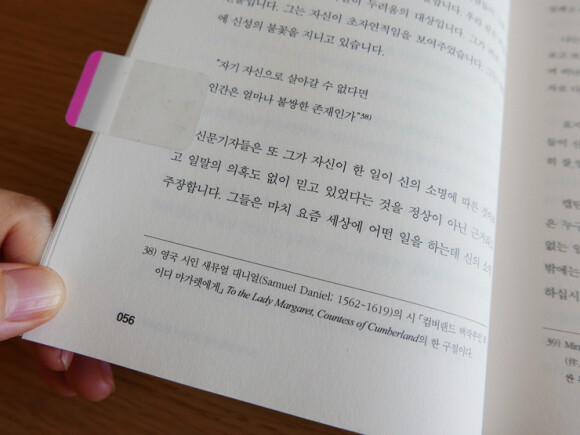 두려움의 대상입니다. 우리
그는 자신이 초자연적임을 보여주었습니다. 그가
에 신성의 불꽃을 지니고 있습니다.
"자기 자신으로 살아갈 수 없다면
인간은 얼마나 불쌍한 존재인가"38)
신문기자들은 또 그가 자신이 한 일이 신의 소명에 따른
고 일말의 의혹도 없이 믿고 있었다는 것을 정상이 아닌
주장합니다. 그들은 마치 요즘 세상에 어떤 일을 하는데 신의
38) 영국 시인 새뮤얼 대니얼(Samuel Daniel: 1562-1619)의 시 「컴버랜드 백작부인
이디 마가렛에게」 To the Lady Margaret, Countess of Cumberland의 한 구절이다.
056
없는
밖에는
하십시
39)